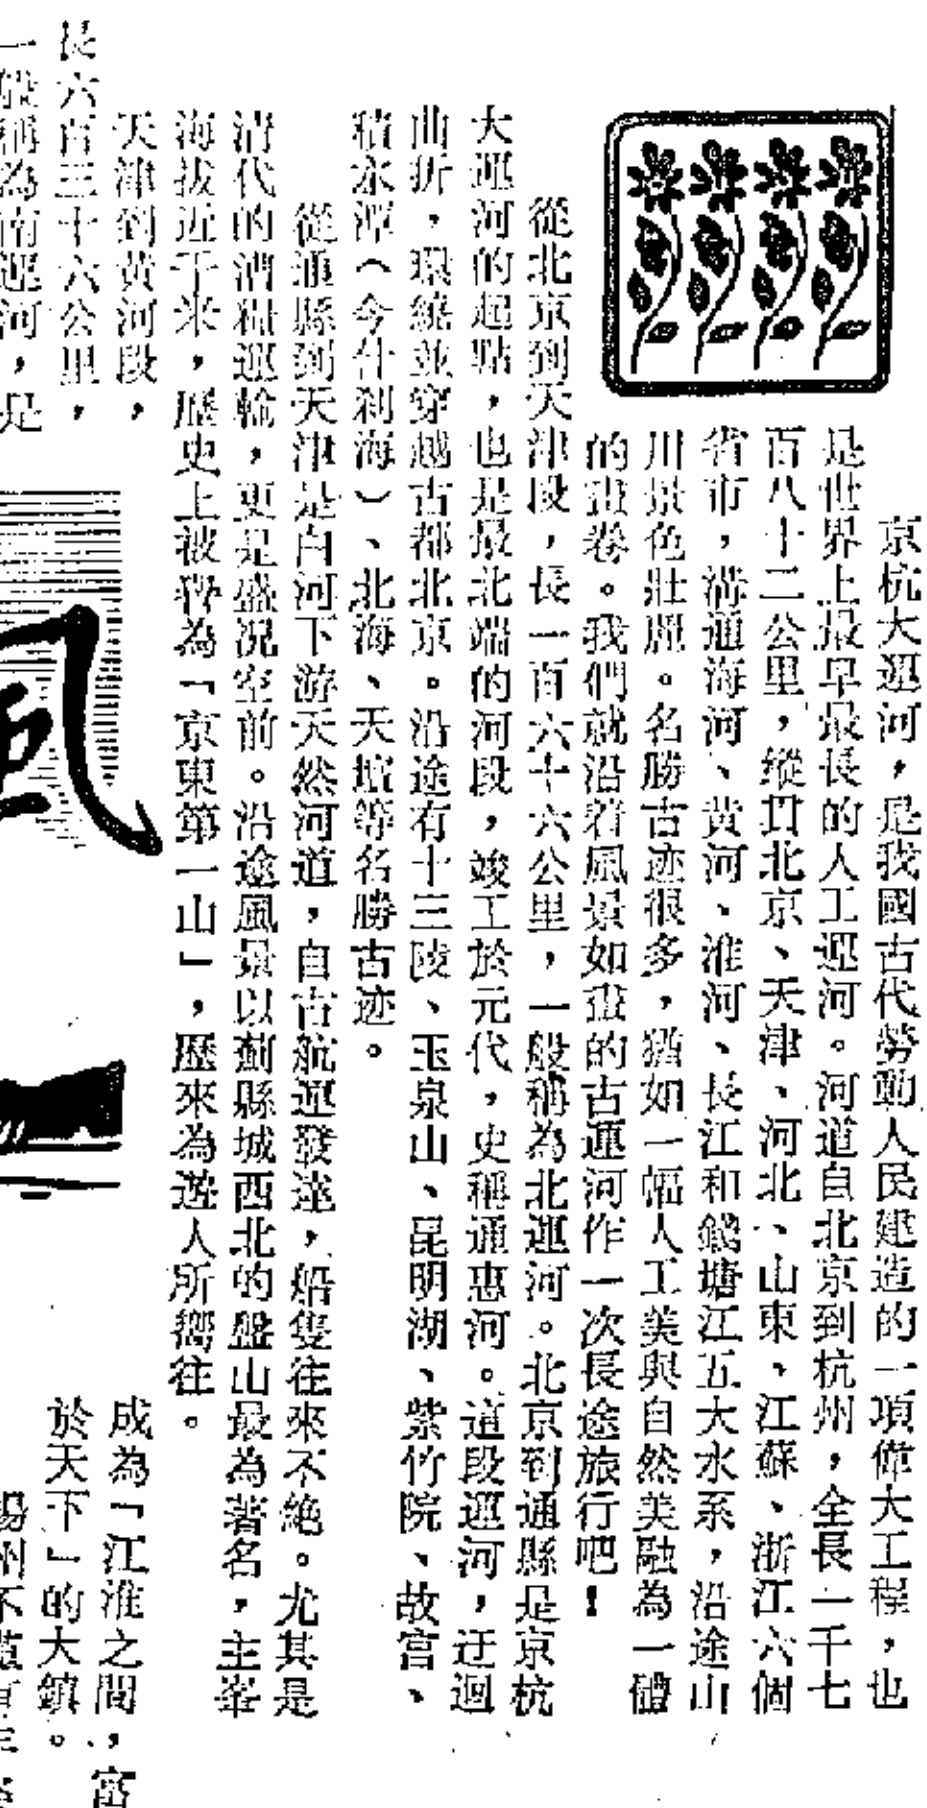 京杭大運河，是我國古代勞動人民建造的一項偉大工程，也
是世界上最早最長的人工運河。河道自北京到杭州，全長一千七
百八十二公里，縱貫北京、天津、河北、山東、江蘇、浙江六個
省市，溝通海河、黃河、淮河、長江和錢塘江五大水系，沿途山
川景色壯麗。名勝古迹很多，猶如一幅人工美與自然美融為一體
的畫卷。我們就沿着風景如畫的古運河作一次長途旅行吧！
從北京到天津段，長一百六十六公里，一般稱為北運河。北京到通縣是京杭
大運河的起點，也是最北端的河段，竣工於元代，史稱通惠河。這段運河，迂迴
曲折，環繞並穿越古都北京。沿途有十三陵、玉泉山、昆明湖、紫竹院、故宮、
積水潭（今什刹海）、北海、天壇等名勝古迹。
從通縣到天津是白河下游天然河道，自古航運發達，船隻往來不絕。尤其是
清代的漕糧運輸，更是盛況空前。沿途風景以薊縣城西北的盤山最為著名，主峯
海拔近千米，歷史上被譽為「京東第一山」，歷來為遊人所嚮往。
天津到黃河段，
長六百三十六公里，
一般稱為南運河，是
風
成為「江淮之間，富
於天下」的大鎮。